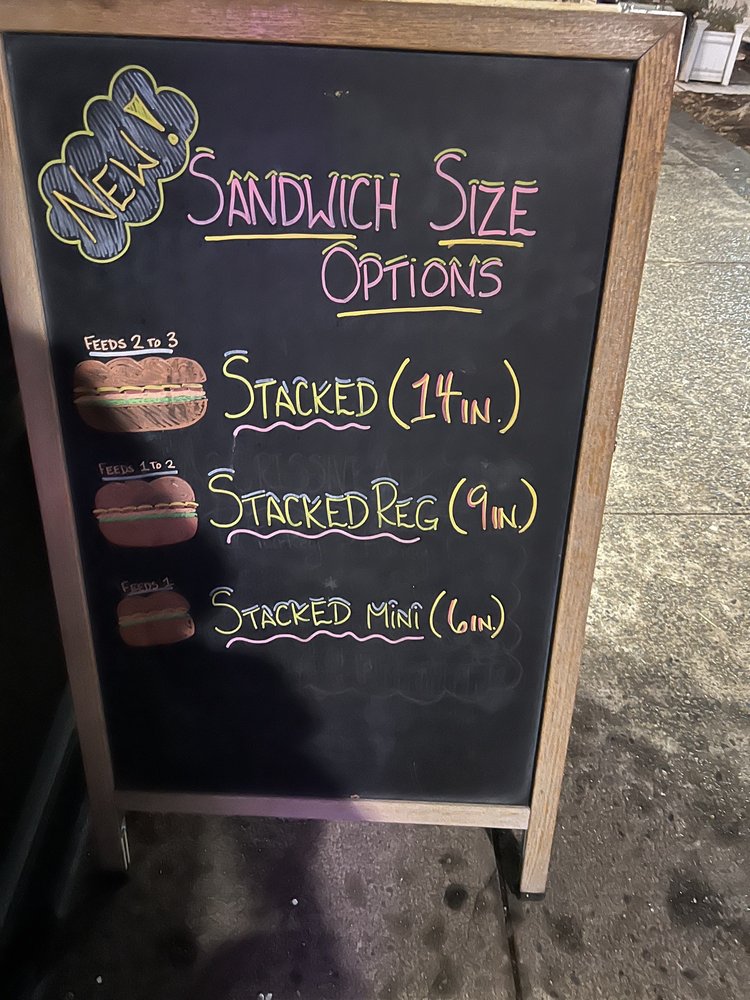 NEW!
SANDWICH SIZE
OPTIONS
FEEDS 2 TO 3
STACKED (14 IN.)
FEEDS 1 TO 2
STACKED REG (9 IN.)
FEEDS 1
STACKED MINI (6 IN.)